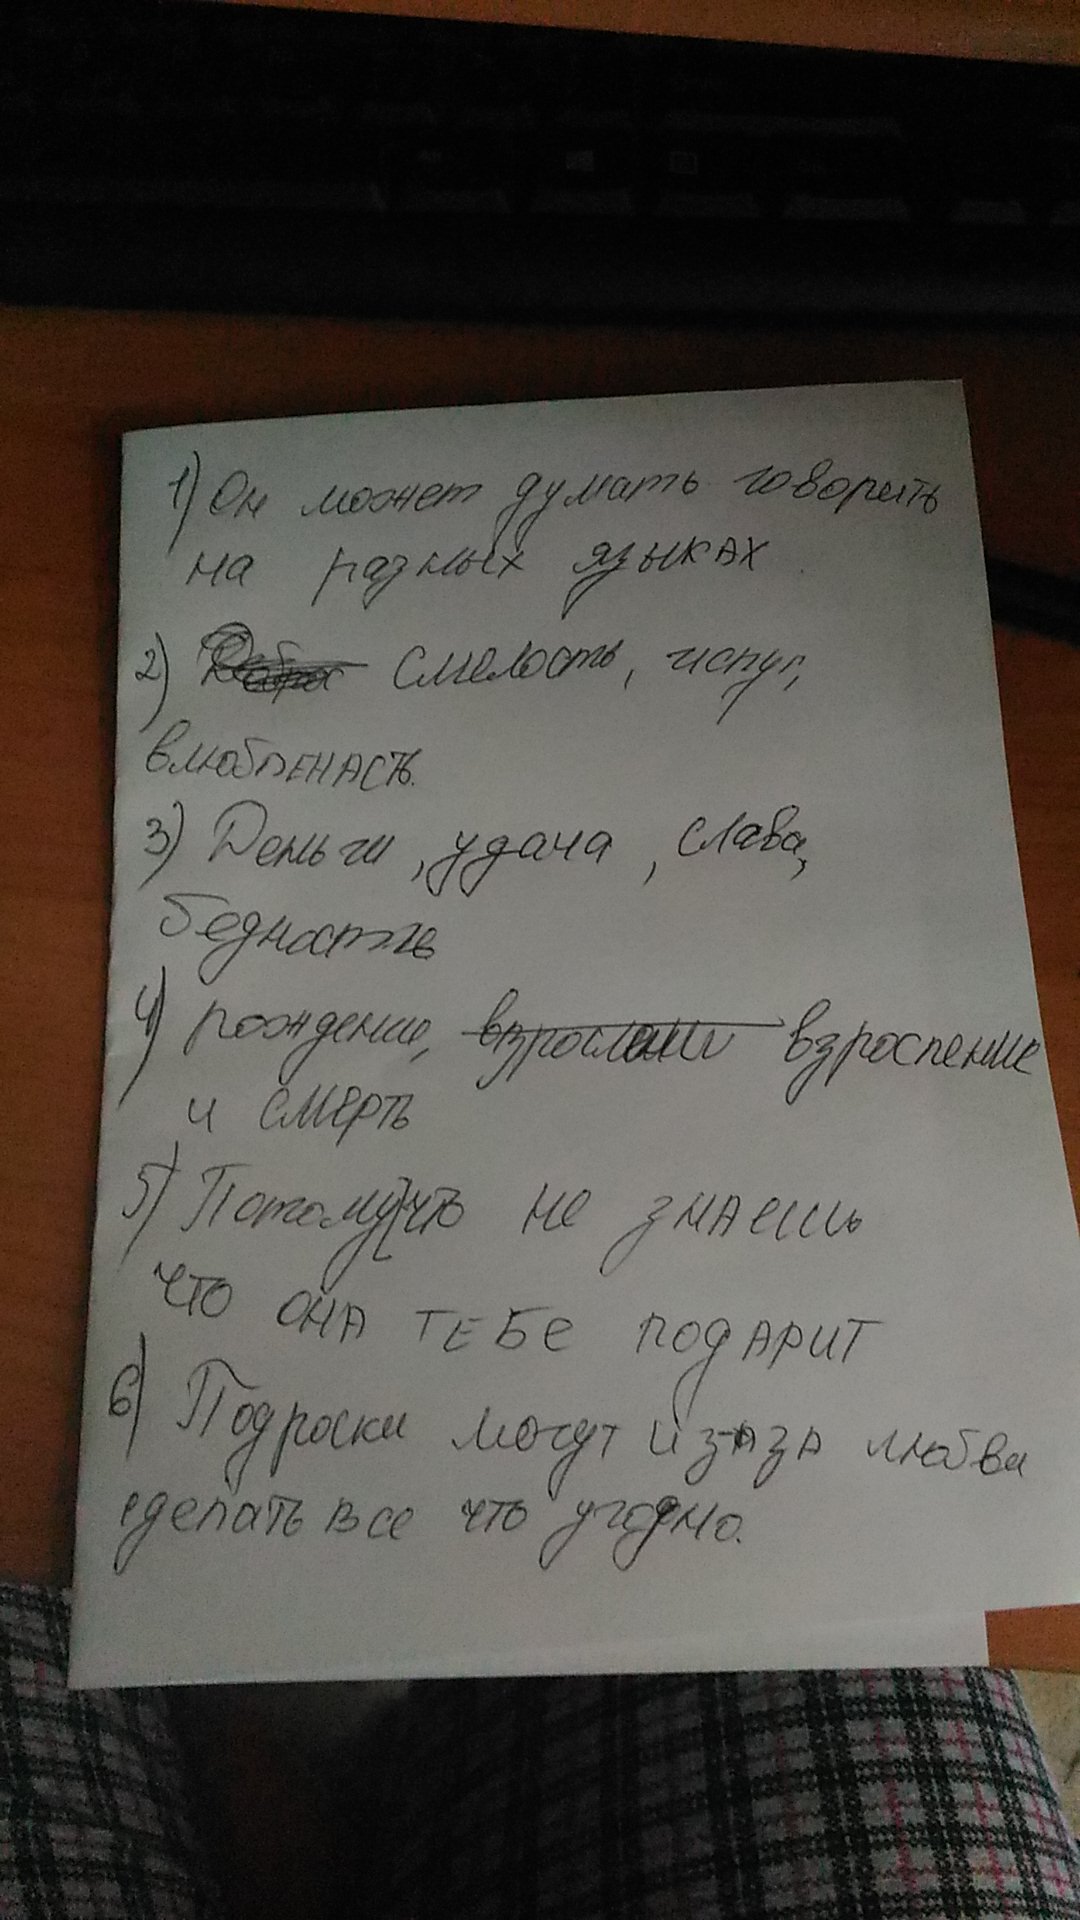 1) Он может думать говорить
на разных языках
2) смелость, испуг,
влюбленасть.
3) Деньги, удача, слава,
бедность
4) рождение, взросление
и смерть
5) Потому что не знаешь
что она тебе подарит
6) Подроски могут из за за любви
сделать все что угодно.